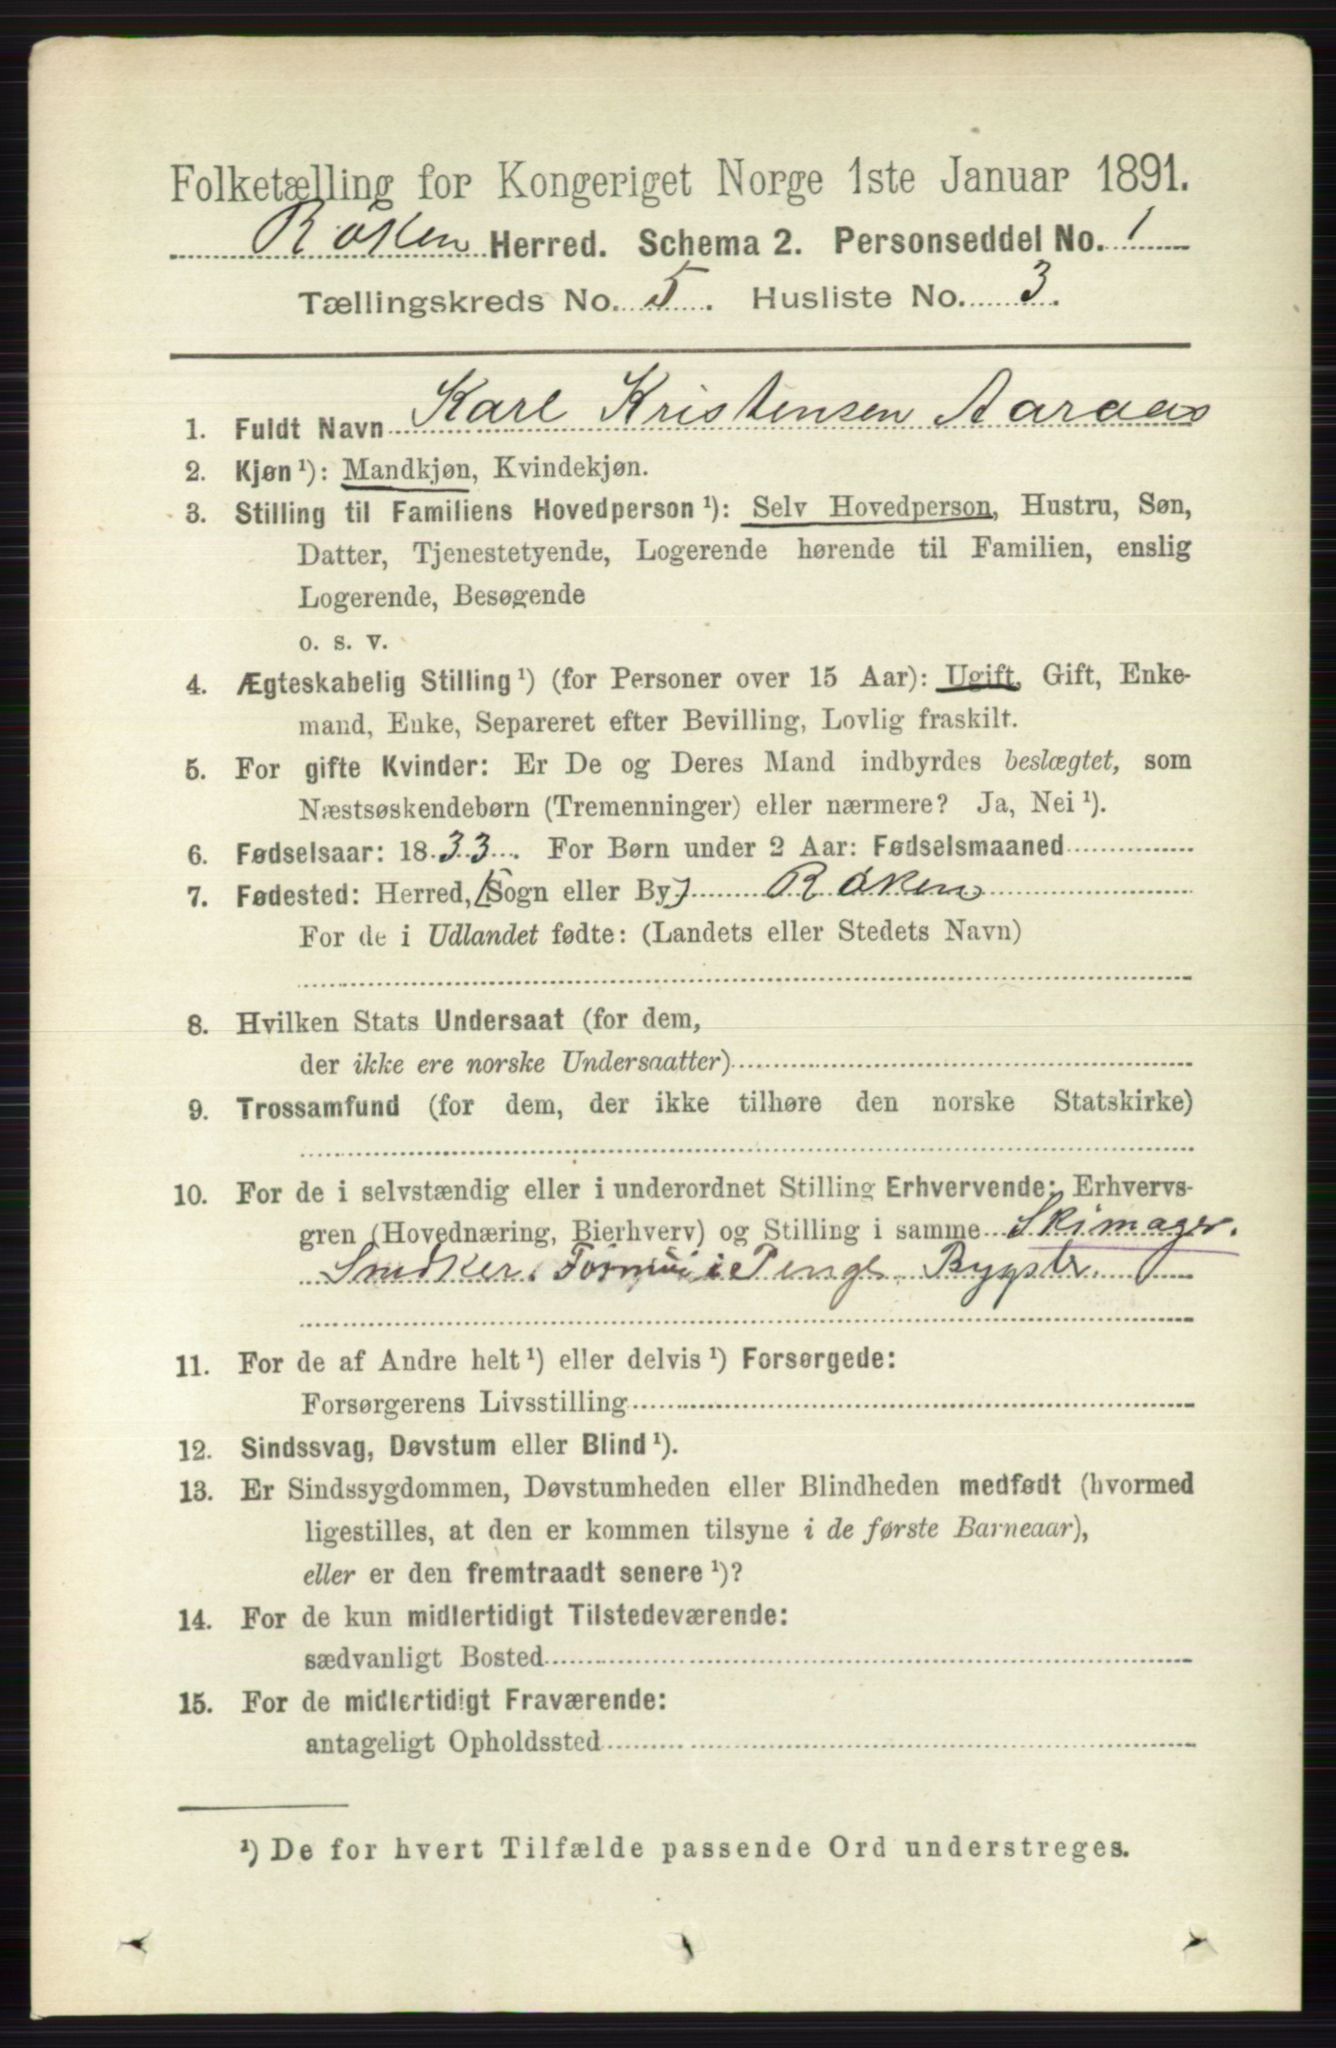 Folketælling for Kongeriget Norge 1ste Januar 1891.
Røken Herred. Schema 2. Personseddel No. 1
Tællingskreds No. 5. Husliste No. 3.
1. Fuldt Navn Karl Kristensen Aaraas
2. Kjøn¹): Mandkjøn, Kvindekjøn.
3. Stilling til Familiens Hovedperson¹): Selv Hovedperson, Hustru, Søn,
Datter, Tjenestetyende, Logerende hørende til Familien, enslig
Logerende, Besøgende
o. s. v.
4. Ægteskabelig Stilling¹) (for Personer over 15 Aar): Ugift, Gift, Enke-
mand, Enke, Separeret efter Bevilling, Lovlig fraskilt.
5. For gifte Kvinder: Er De og Deres Mand indbyrdes beslægtet, som
Næstsøskendebørn (Tremenninger) eller nærmere? Ja, Nei¹).
6. Fødselsaar: 1833. For Børn under 2 Aar: Fødselsmaaned
7. Fødested: Herred, [Sogn eller By] Røken
For de i Udlandet fødte: (Landets eller Stedets Navn)
8. Hvilken Stats Undersaat (for dem,
der ikke ere norske Undersaatter)
9. Trossamfund (for dem, der ikke tilhøre den norske Statskirke)
10. For de i selvstændig eller i underordnet Stilling Erhvervende: Erhvervs-
gren (Hovednæring, Bierhverv) og Stilling i samme Skimager.
Snedker. i Penge
11. For de af Andre helt¹) eller delvis¹) Forsørgede:
Forsørgerens Livsstilling
12. Sindssvag, Døvstum eller Blind¹).
13. Er Sindssygdommen, Døvstumheden eller Blindheden medfødt (hvormed
ligestilles, at den er kommen tilsyne i de første Barneaar),
eller er den fremtraadt senere¹)?
14. For de kun midlertidigt Tilstedeværende:
sædvanligt Bosted
15. For de midlertidigt Fraværende:
antageligt Opholdssted
¹) De for hvert Tilfælde passende Ord understreges.